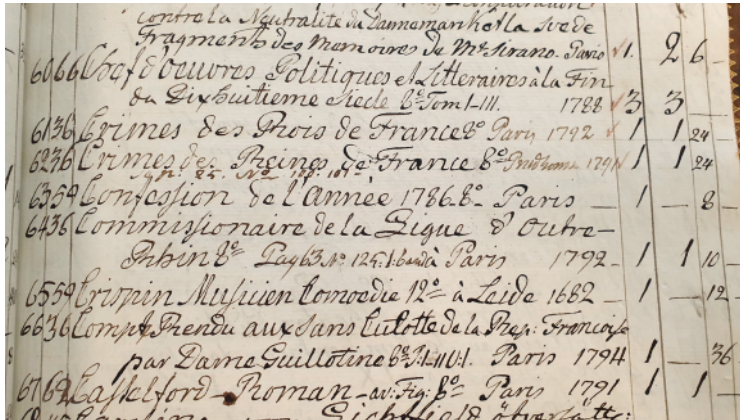 contre la Neutralité du Dannemark et la Svede
Fragments des Memoires de Mr. Sirano. Paris 1. 2 6
Chef d'oeuvres Politiques et Litteraires à la Fin
du Dixhuitieme Siecle 8º Tom I-III. 1788 3 3
6136 Crimes des Rois de France 8º Paris 1792 1 1 24
6236 Crimes des Reines de France 8º 1791 1 1 24
Confession de l'Année 1786. 8º Paris 1 - 8 -
6436 Commissionaire de la Ligue d'Outre-
Rhin 8º Paris 1792 - 1 1 10 -
Crispin Musicien Comoedie 12º à Leide 1682 - 1 - 12 -
6636 Compte Rendu aux Sans Culotte de la Rep: Francoise
par Dame Guillotine 8º Paris 1794 1 - 36
Casselford - Roman - av: Fig: 8º Paris 1791 1 1 -